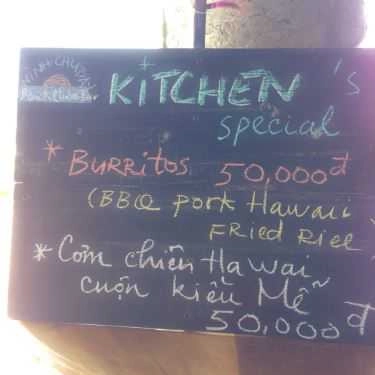 NINH CHU BAY
KITCHEN's
special
* BURRITOS 50,000đ
(BBQ pork Hawaii
FRIED RICE)
* Cơm chiên Hawai
cuộn kiểu Mễ
50,000đ